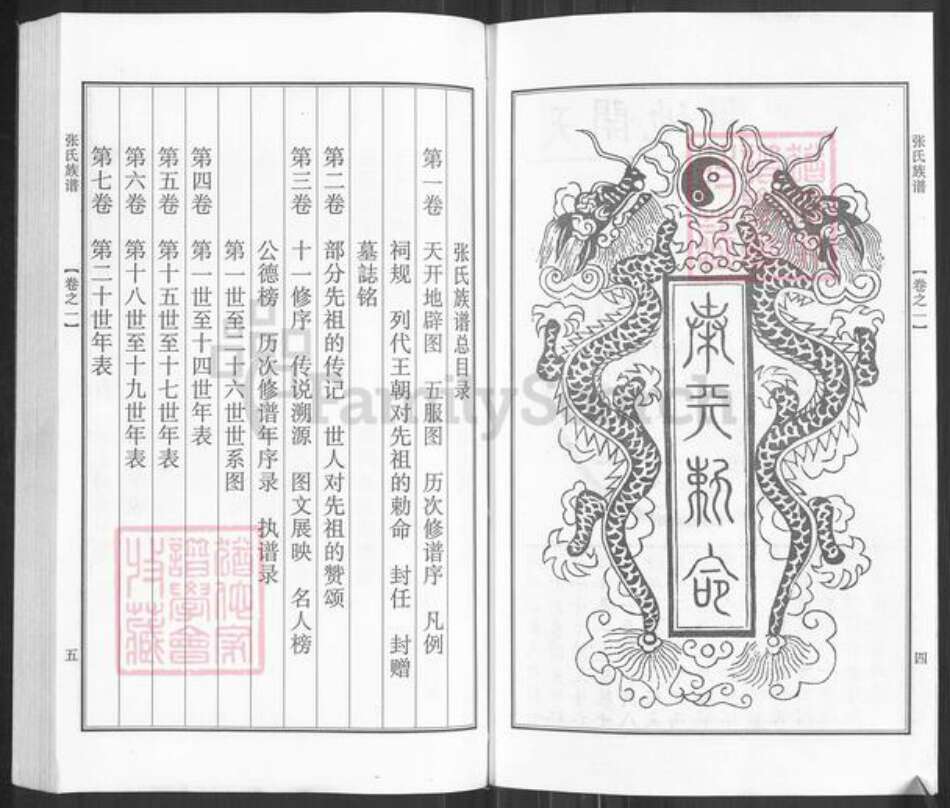 张氏族谱
【卷之一】
四
奉天敕命
张氏族谱总目录
第一卷 天开地辟图 五服图 历次修谱序 凡例
祠规 列代王朝对先祖的勅命 封任 封赠
墓誌铭
第二卷 部分先祖的传记 世人对先祖的赞颂
第三卷 十一修序 传说溯源 图文展映 名人榜
公德榜 历次修谱年序录 执谱录
第一世至十六世世系图
第四卷 第一世至十四世年表
第五卷 第十五世至十七世年表
第六卷 第十八世至十九世年表
第七卷 第二十世年表
张氏族谱
【卷之一】
五
FamilySearch